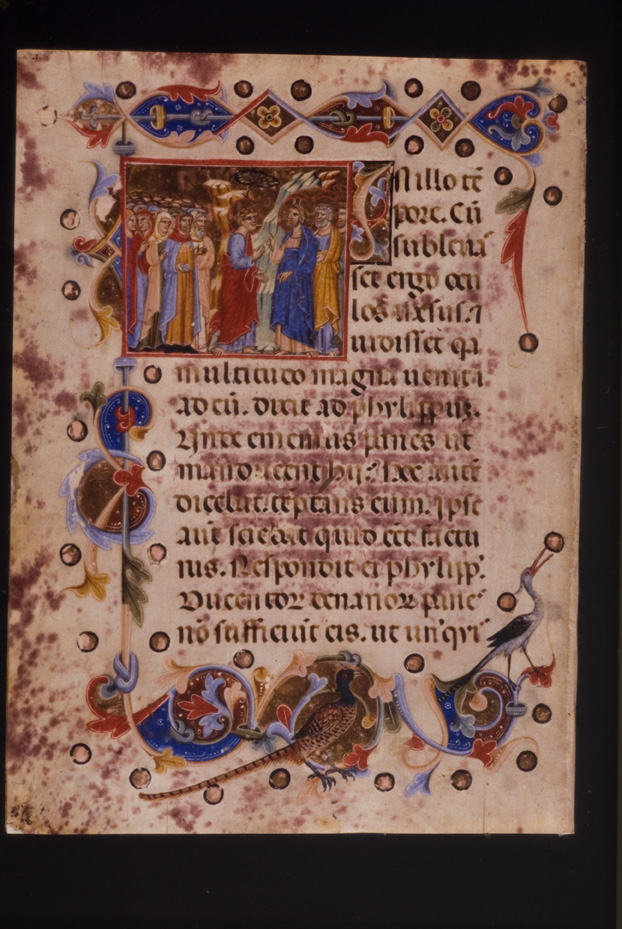 In illo tē
pore. Cū
subleuas
set ergo ocu
los ihsus. ⁊
uidisset qa
multitudo magna uenit
ad eū. dicit ad phylippuz.
Vnde ememus panes ut
manducent hij. hoc autē
dicebat. teptans eum. ipse
aut̄ sciebat quid eēt factu
rus. Respondit ei phylipp9.
Ducentor denarior panes
nō sufficiūt eis. ut un9q̄i